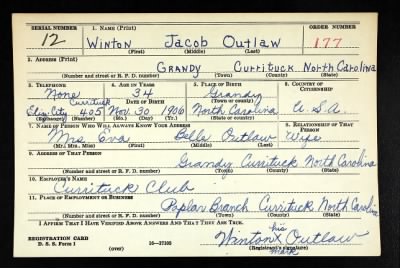 SERIAL NUMBER 1. NAME (Print) ORDER NUMBER
12 WINTON Jacob Outlaw 177
(First) (Middle) (Last)
2. ADDRESS (Print)
GRANDY Currituck North Carolina
(Number and street or R. F. D. number) (Town) (County) (State)
3. TELEPHONE 4. AGE IN YEARS 5. PLACE OF BIRTH 6. COUNTRY OF CITIZENSHIP
None 34 Grandy
Currituck DATE OF BIRTH (Town or county)
Eliz. City 405 Nov. 30 1906 North Carolina U.S.A.
(Exchange) (Number) (Mo.) (Day) (Yr.) (State or country)
7. NAME OF PERSON WHO WILL ALWAYS KNOW YOUR ADDRESS 8. RELATIONSHIP OF THAT PERSON
Mrs. Eva Bella Outlaw Wife
(Mr., Mrs., Miss) (First) (Middle) (Last)
9. ADDRESS OF THAT PERSON
Grandy Currituck North Carolina
(Number and street or R. F. D. number) (Town) (County) (State)
10. EMPLOYER'S NAME
Currituck Club
11. PLACE OF EMPLOYMENT OR BUSINESS
Poplar Branch Currituck North Carolina
(Number and street or R. F. D. number) (Town) (County) (State)
I AFFIRM THAT I HAVE VERIFIED ABOVE ANSWERS AND THAT THEY ARE TRUE.
his
REGISTRATION CARD Winton X Outlaw
D. S. S. Form 1 (over) 16—17105 (Registrant's signature)
mark